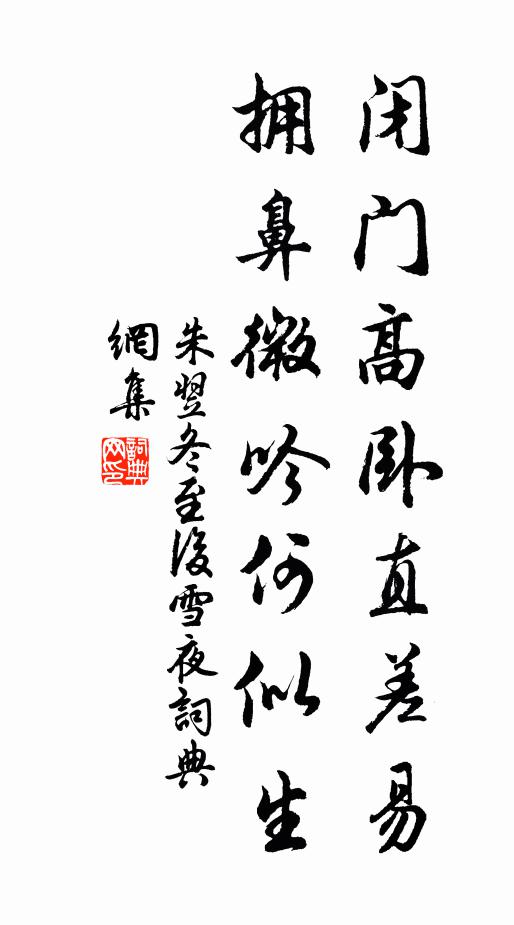 闭门高卧直差易
拥鼻微吟何似生
朱翌冬至後雪夜詞典
網集
詞典网印